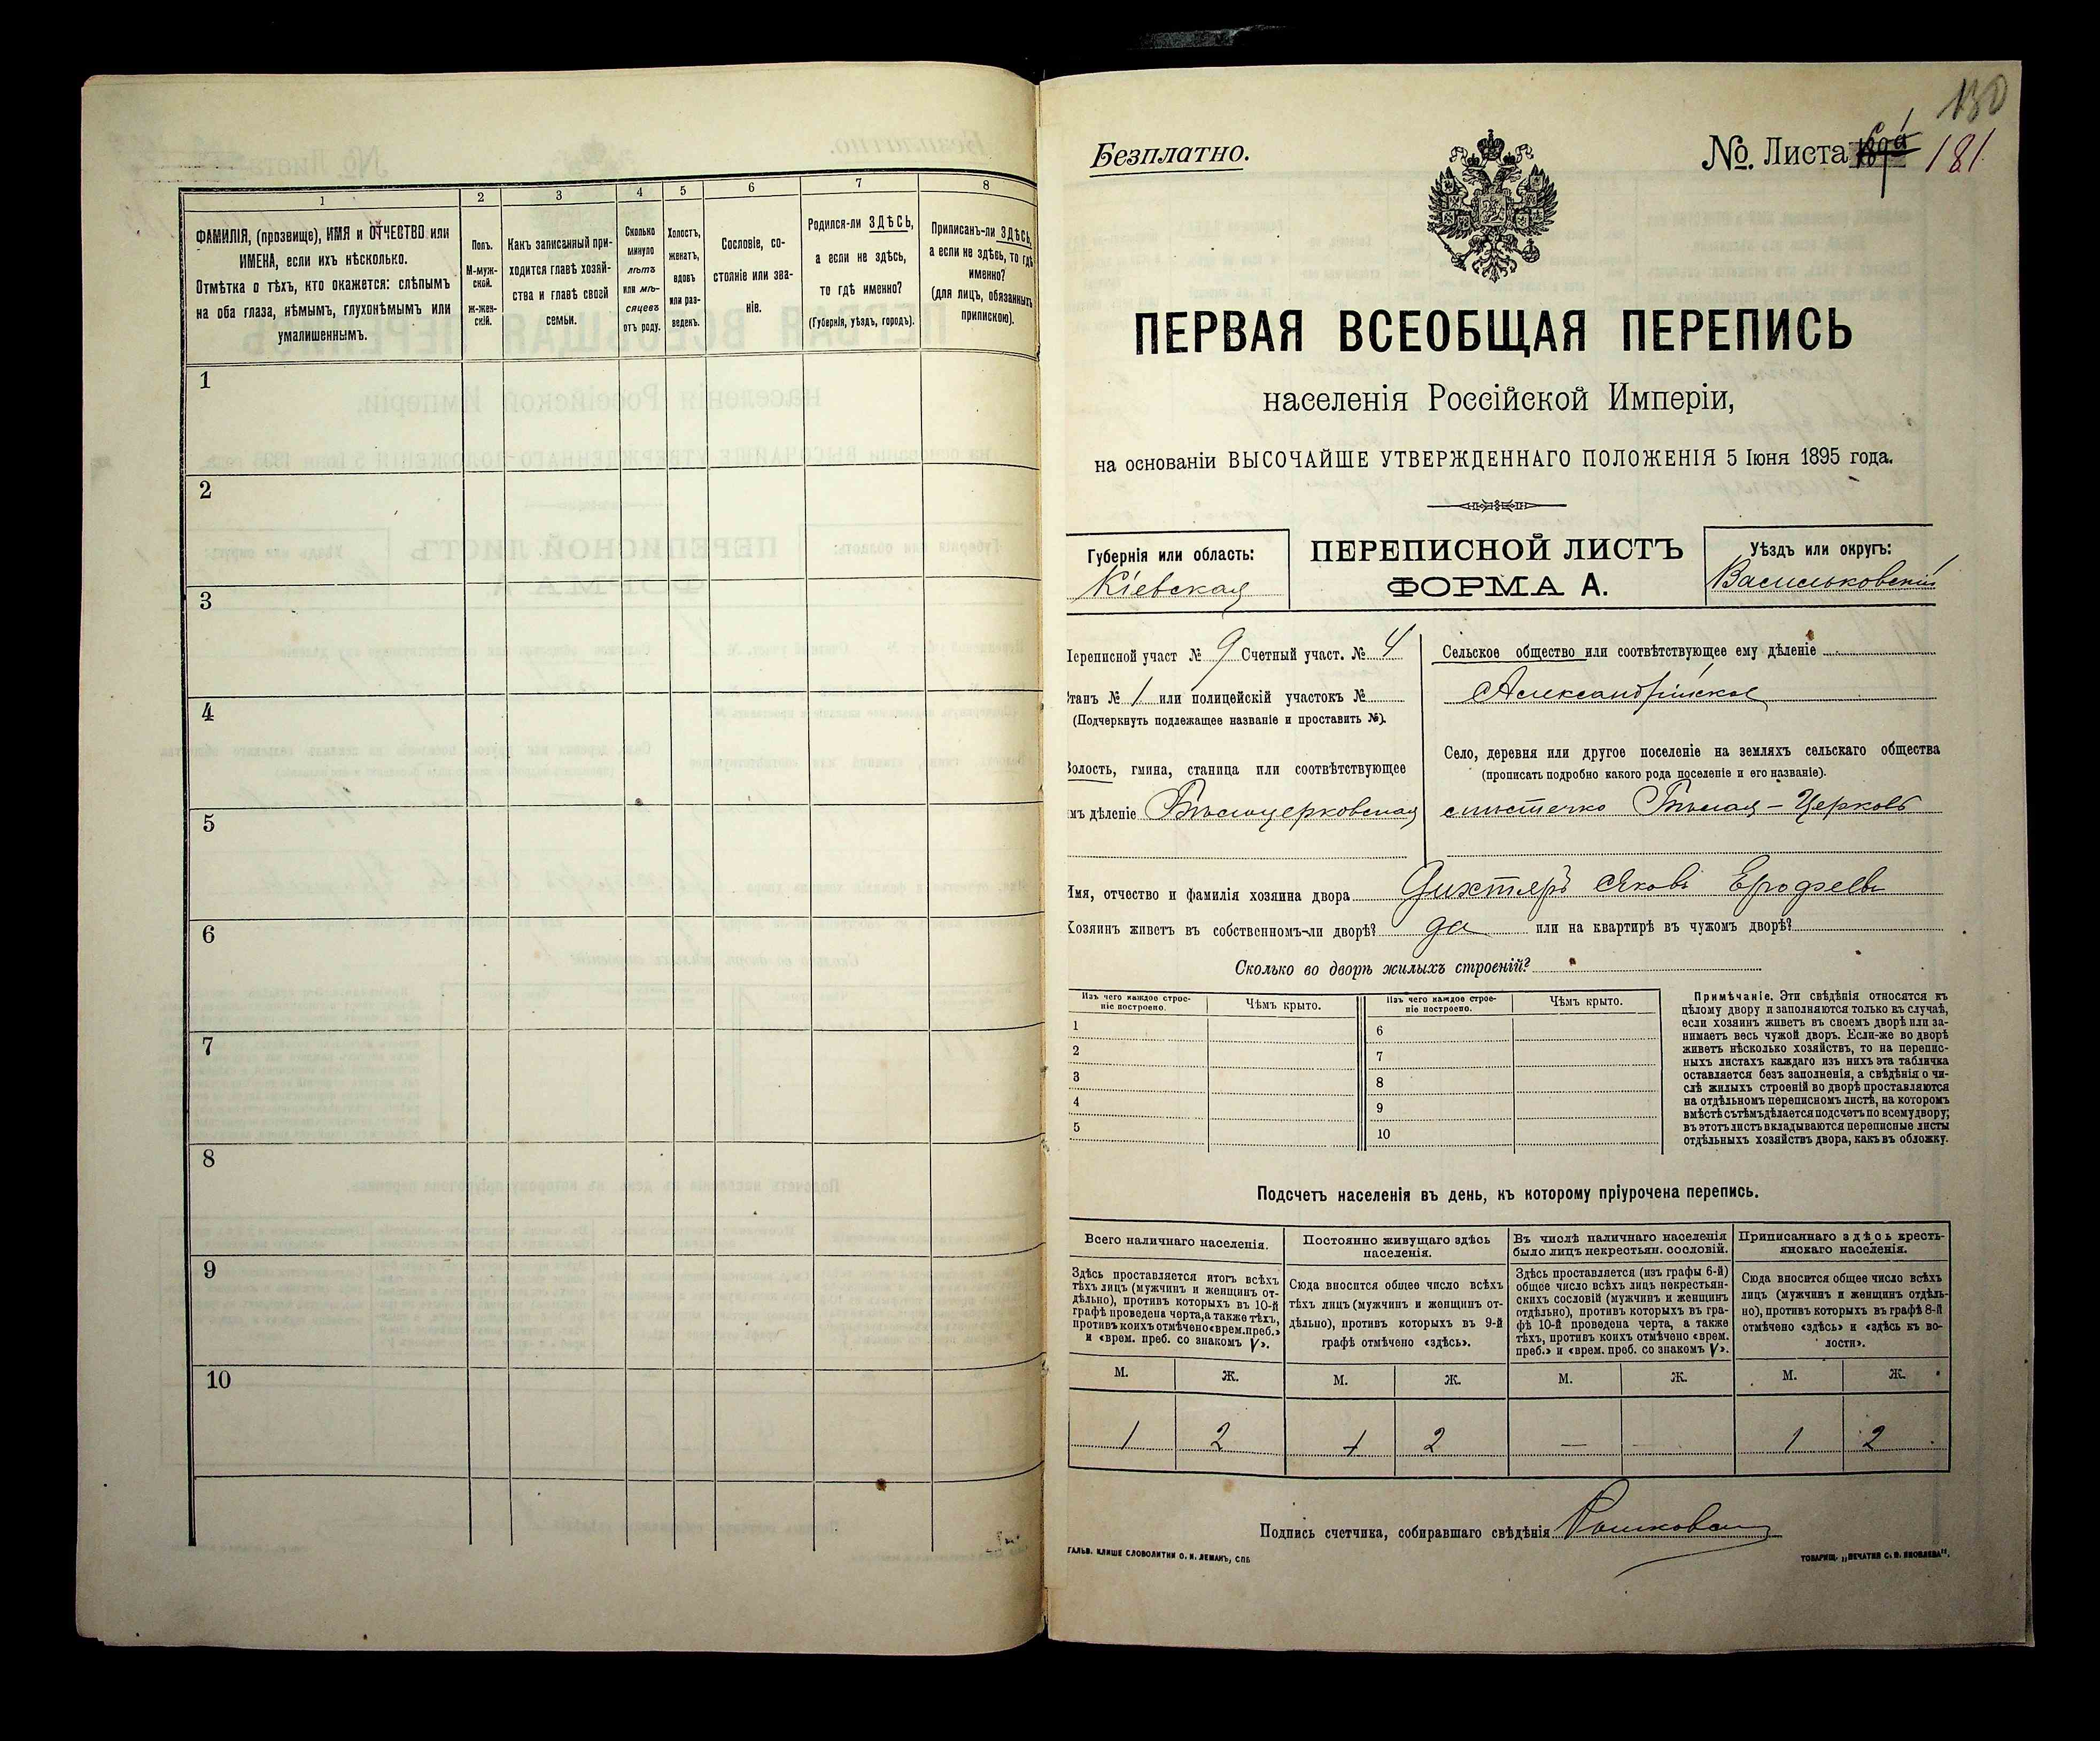 1
2
3
4
5
6
7
8
ФАМИЛІЯ, (прозвище), ИМЯ и ОТЧЕСТВО или
ИМЕНА, если ихъ нѣсколько.
Отмѣтка о тѣхъ, кто окажется: слѣпымъ
на оба глаза, нѣмымъ, глухонѣмымъ или
умалишеннымъ.
Полъ.
М-муж-
ской.
ж-жен-
скій.
Какъ записанный при-
ходится главѣ хозяй-
ства и главѣ своей
семьи.
Сколько
минуло
лѣтъ
или мѣ-
сяцевъ
отъ роду.
Холостъ,
женатъ,
вдовъ
или раз-
веденъ.
Сословіе, со-
стояніе или зва-
ніе.
Родился-ли ЗДѢСЬ,
а если не здѣсь,
то гдѣ именно?
(Губернія, уѣздъ, городъ).
Приписанъ-ли ЗДѢСЬ,
а если не здѣсь, то гдѣ
именно?
(для лицъ, обязанныхъ
припискою).
1
2
3
4
5
6
7
8
9
10
130
Безплатно.
№. Листа 181
ПЕРВАЯ ВСЕОБЩАЯ ПЕРЕПИСЬ
населенія Россійской Имперіи,
на основаніи ВЫСОЧАЙШЕ УТВЕРЖДЕННАГО ПОЛОЖЕНІЯ 5 Іюня 1895 года.
Губернія или область:
Кіевская
ПЕРЕПИСНОЙ ЛИСТЪ
ФОРМА А.
Уѣздъ или округъ:
Васильковскій
Переписной участ № 9 Счетный участ. № 4
Станъ № 1 или полицейскій участокъ №
(Подчеркнуть подлежащее названіе и проставить №).
Волость, гмина, станица или соотвѣтствующее
имъ дѣленіе Бѣлоцерковская
Сельское общество или соотвѣтствующее ему дѣленіе
Александрійское
Село, деревня или другое поселеніе на земляхъ сельскаго общества
(прописать подробно какого рода поселеніе и его названіе).
мѣстечко Бѣлая-Церковь
Имя, отчество и фамилія хозяина двора Дихтярь Яковъ Ерофеевъ
Хозяинъ живетъ въ собственномъ-ли дворѣ? да или на квартирѣ въ чужомъ дворѣ?
Сколько во дворѣ жилыхъ строеній?
Изъ чего каждое строе-
ніе построено.
Чѣмъ крыто.
Изъ чего каждое строе-
ніе построено.
Чѣмъ крыто.
1
2
3
4
5
6
7
8
9
10
Примѣчаніе. Эти свѣдѣнія относятся къ
цѣлому двору и заполняются только въ случаѣ,
если хозяинъ живетъ въ своемъ дворѣ или за-
нимаетъ весь чужой дворъ. Если-же во дворѣ
живетъ нѣсколько хозяйствъ, то на перепис-
ныхъ листахъ каждаго изъ нихъ эта табличка
оставляется безъ заполненія, а свѣдѣнія о чи-
слѣ жилыхъ строеній во дворѣ проставляются
на отдѣльномъ переписномъ листѣ, на которомъ
вмѣстѣ съ тѣмъ дѣлается подсчетъ по всему двору;
въ этотъ листъ вкладываются переписные листы
отдѣльныхъ хозяйствъ двора, какъ въ обложку.
Подсчетъ населенія въ день, къ которому пріурочена перепись.
Всего наличнаго населенія.
Здѣсь проставляется итогъ всѣхъ
тѣхъ лицъ (мужчинъ и женщинъ от-
дѣльно), противъ которыхъ въ 10-й
графѣ проведена черта, а также тѣхъ,
противъ коихъ отмѣчено «врем. преб.»
и «врем. преб. со знакомъ V».
Постоянно живущаго здѣсь
населенія.
Сюда вносится общее число всѣхъ
тѣхъ лицъ (мужчинъ и женщинъ от-
дѣльно), противъ которыхъ въ 9-й
графѣ отмѣчено «здѣсь».
Въ числѣ наличнаго населенія
было лицъ некрестьян. сословій.
Здѣсь проставляется (изъ графы 6-й)
общее число всѣхъ лицъ некрестьян-
скихъ сословій (мужчинъ и женщинъ
отдѣльно), противъ которыхъ въ гра-
фѣ 10-й проведена черта, а также
тѣхъ, противъ коихъ отмѣчено «врем.
преб.» и «врем. преб. со знакомъ V».
Приписаннаго здѣсь кресть-
янскаго населенія.
Сюда вносится общее число всѣхъ
лицъ (мужчинъ и женщинъ отдѣль-
но), противъ которыхъ въ графѣ 8-й
отмѣчено «здѣсь» и «здѣсь въ во-
лости».
М. Ж. М. Ж. М. Ж. М. Ж.
1 2 1 2 — — 1 2
Подпись счетчика, собиравшаго свѣдѣнія
ГАЛЬВ. КЛИШЕ СЛОВОЛИТНИ О. И. ЛЕМАНЪ, СПБ
ТОВАРИЩ. „ПЕЧАТНЯ С. П. ЯКОВЛЕВА".